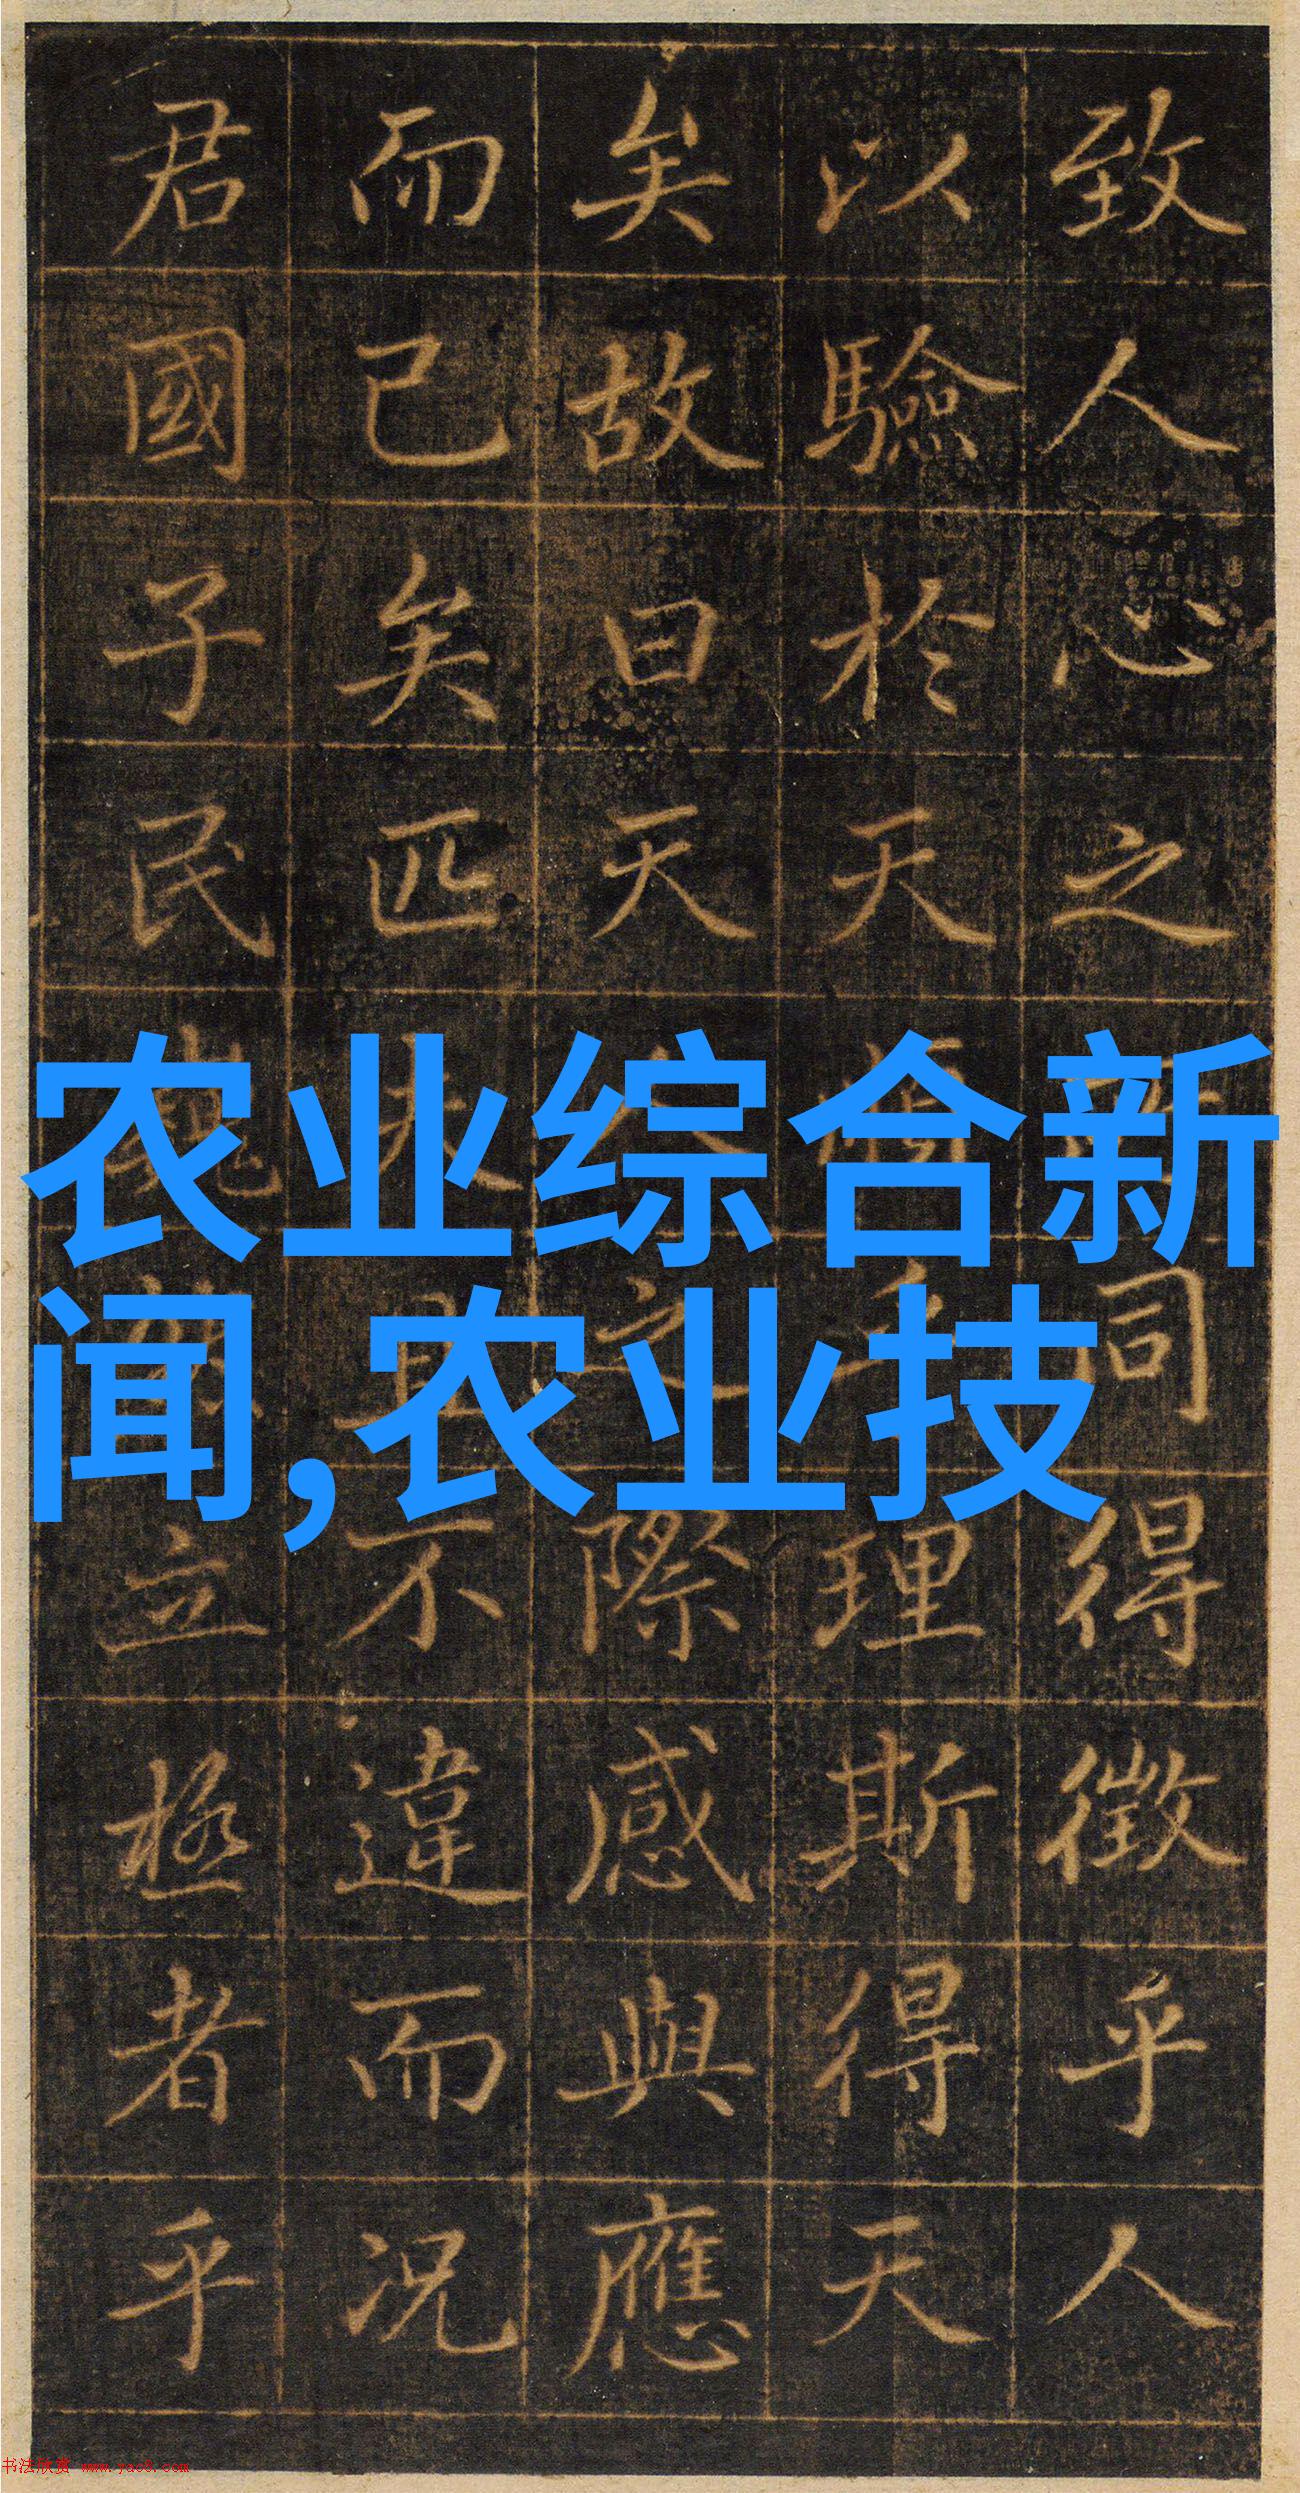 致人心之同得徵乎人
以驗於天理斯得天
矣故曰天人之際感與應
而已矣匹夫且不違而況
君國子民巍然立極者乎
农业综合新
闻,农业技
书法欣赏 www.yac8.com